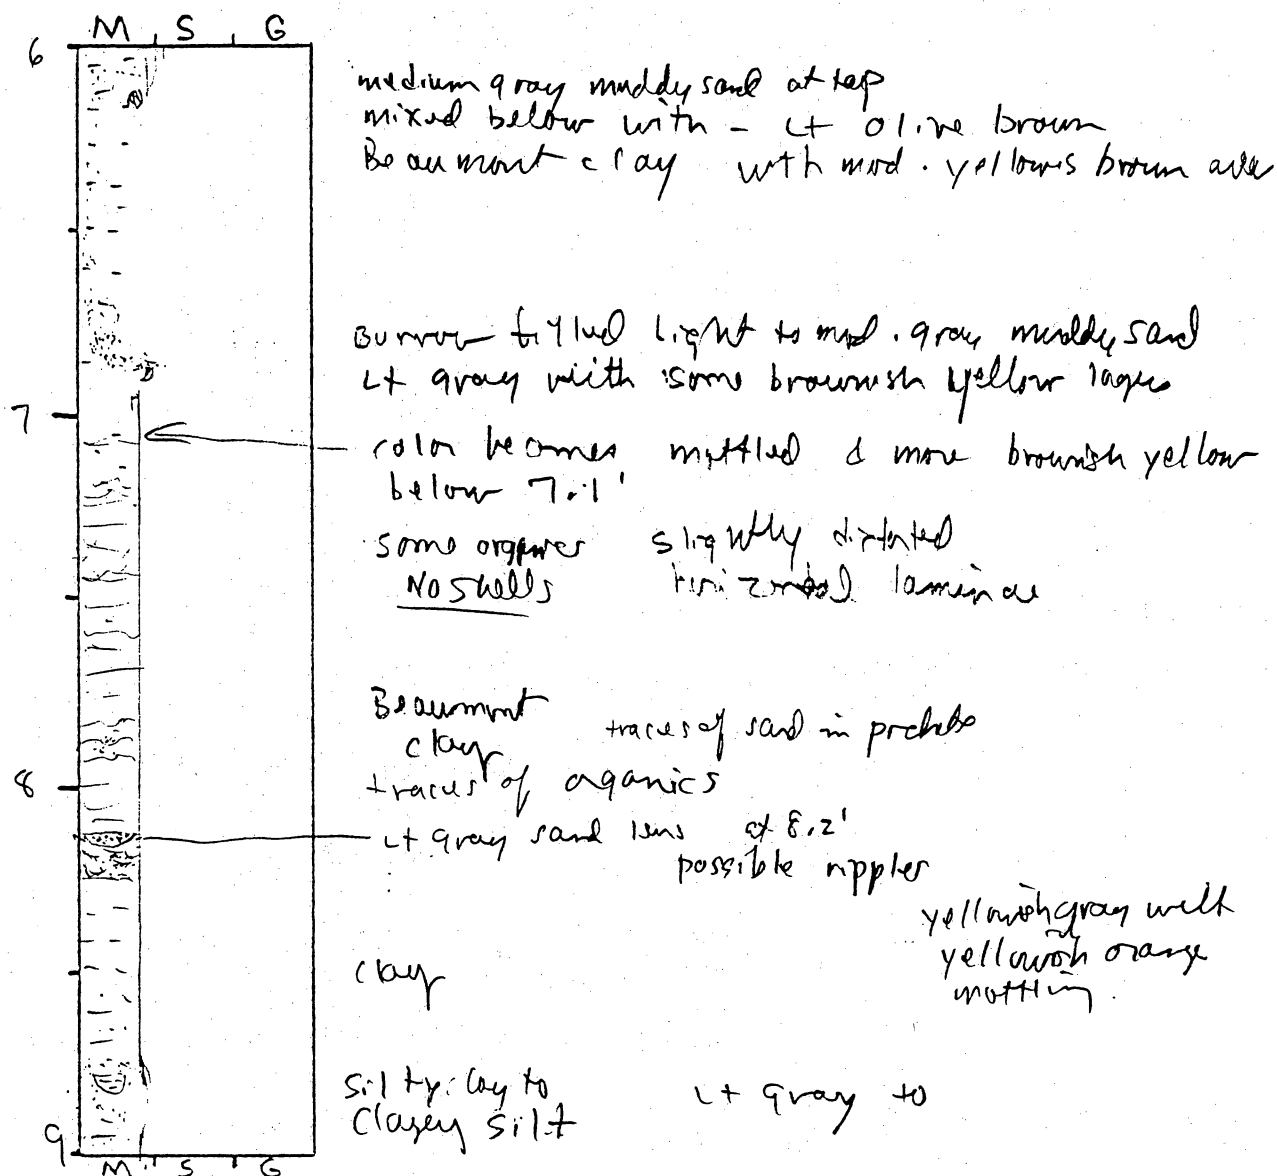 M S G
6
medium gray muddy sand at top
mixed below with - Lt olive brown
Beaumont clay with mod. yellowis brown
Burrow filled light to med. gray muddy sand
Lt gray with some brownish yellow
7
color becomes mottled & more brownish yellow
below 7.1'
some slightly distorted
No shells horizontal laminae
Beaumont
clay traces of sand in
8
traces of oganics
Lt gray sand lens at 8.2'
possible ripples
yellowish gray with
yellowish orange
mottling
clay
silty clay to Lt gray to
Clayey silt
9
M S G